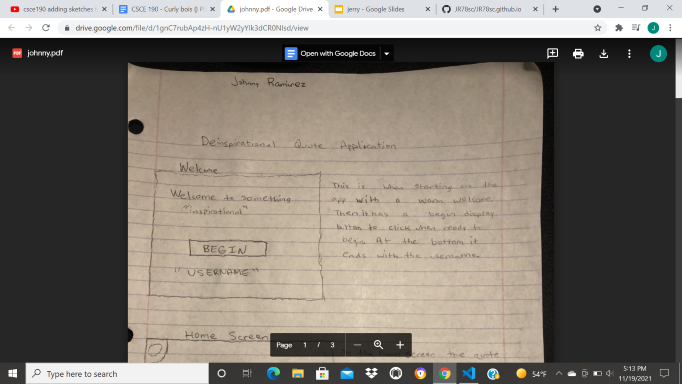 csce190 adding sketches
CSCE 190 - Curly bois (J
johnny.pdf - Google Drive
jerry - Google Slides
JR78sc/JR78sc.github.io
drive.google.com/file/d/1gnC7rubAp4zH-nU1yW2yYlk3dCR0NIsd/view
J
PDF johnny.pdf
Open with Google Docs
J
Johnny Raminez
Deinspirational Quote Application
Welcome
Welcome to something
"inspirational"
BEGIN
"USERNAME"
This is when starting on the
app with a warm welcome.
Then it has a begin display
button to click when ready to
begin. At the bottom it
ends with the username.
Home Screen
screen the quote
Page 1 / 3
Type here to search
54°F
5:13 PM
11/19/2021